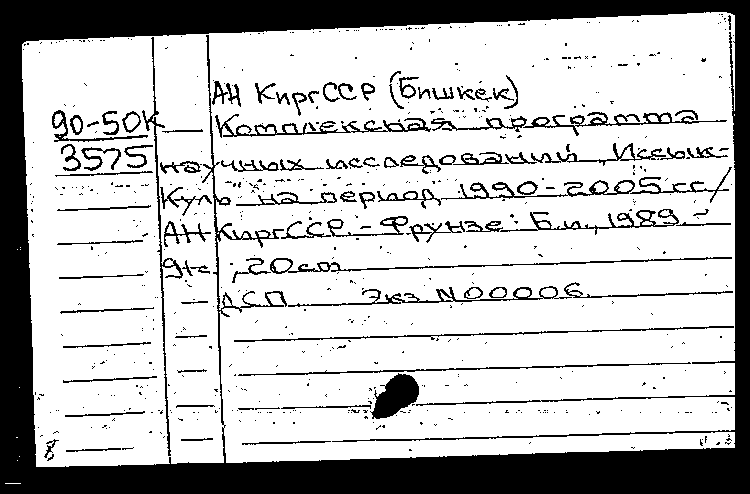 АН КиргССР (Бишкек)
90-50К Комплексная программа
3575 научных исследований „Иссык-
Куль" на период 1990-2005 гг/
АН КиргССР. - Фрунзе: Б.и., 1989. -
9+с ; 20см
ДСП Экз N00006
8